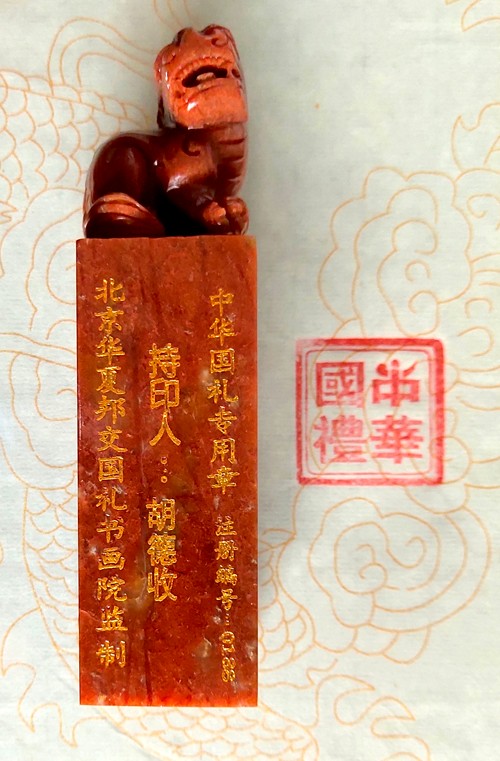 中华国礼专用章 注册编号:038
持印人:胡德收
北京华夏邦文国礼书画院监制
中華
國禮